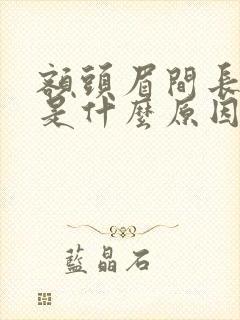 額頭眉間長
是什麼原因
藍晶石